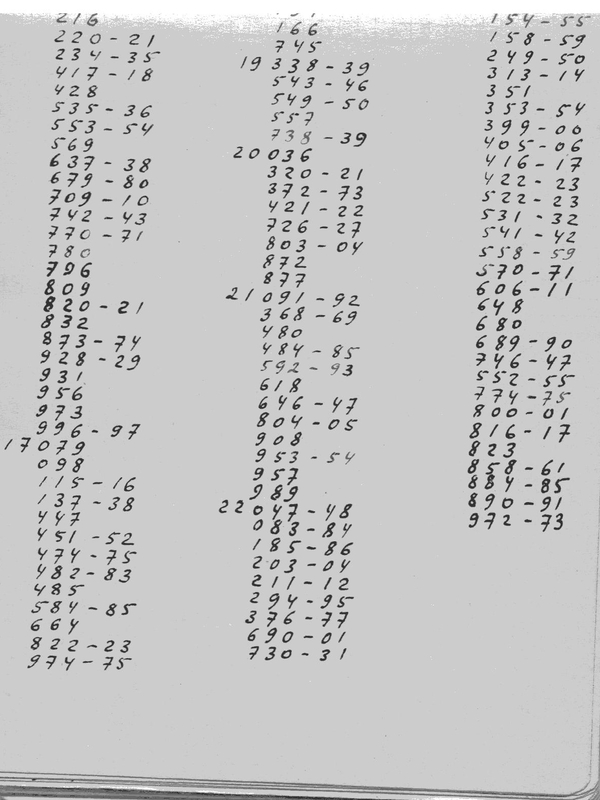 216
220-21
234-35
417-18
428
535-36
553-54
569
637-38
679-80
709-10
742-43
770-71
780
796
809
820-21
832
873-74
928-29
931
956
973
996-97
17 079
098
115-16
137-38
447
451-52
474-75
482-83
485
584-85
664
822-23
974-75
166
745
19 338-39
543-46
549-50
557
738-39
20 036
320-21
372-73
421-22
726-27
803-04
872
877
21 091-92
368-69
480
484-85
592-93
618
646-47
804-05
908
953-54
957
989
22 047-48
083-84
185-86
203-04
211-12
294-95
376-77
690-01
730-31
154-55
158-59
249-50
313-14
351
353-54
399-00
405-06
416-17
422-23
522-23
531-32
541-42
558-59
570-71
606-11
648
680
689-90
746-47
552-55
774-75
800-01
816-17
823
858-61
884-85
890-91
972-73